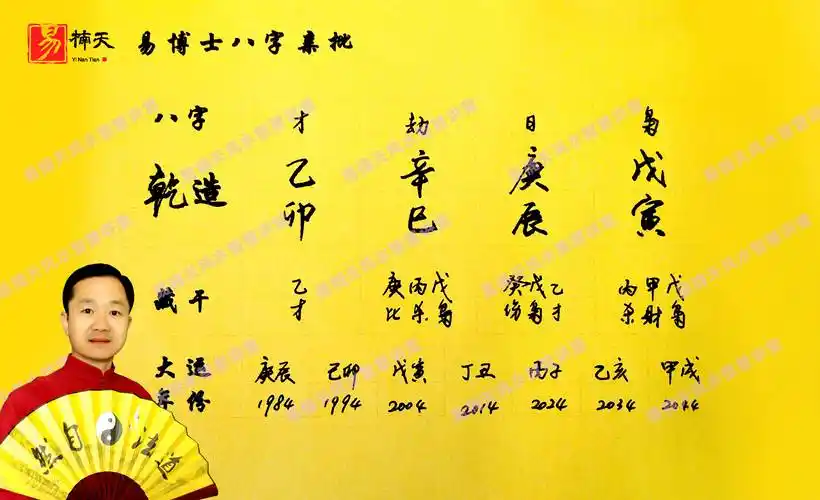 易 楠天 易博士八字亲批
Yi Nan Tian
八字 才 劫 日 枭
乾造 乙 辛 庚 戊
卯 巳 辰 寅
藏干 乙 庚丙戊 癸戊乙 丙甲戊
才 比杀枭 伤枭才 杀财枭
大运 庚辰 己卯 戊寅 丁丑 丙子 乙亥 甲戌
年份 1984 1994 2004 2014 2024 2034 2044
然自法道